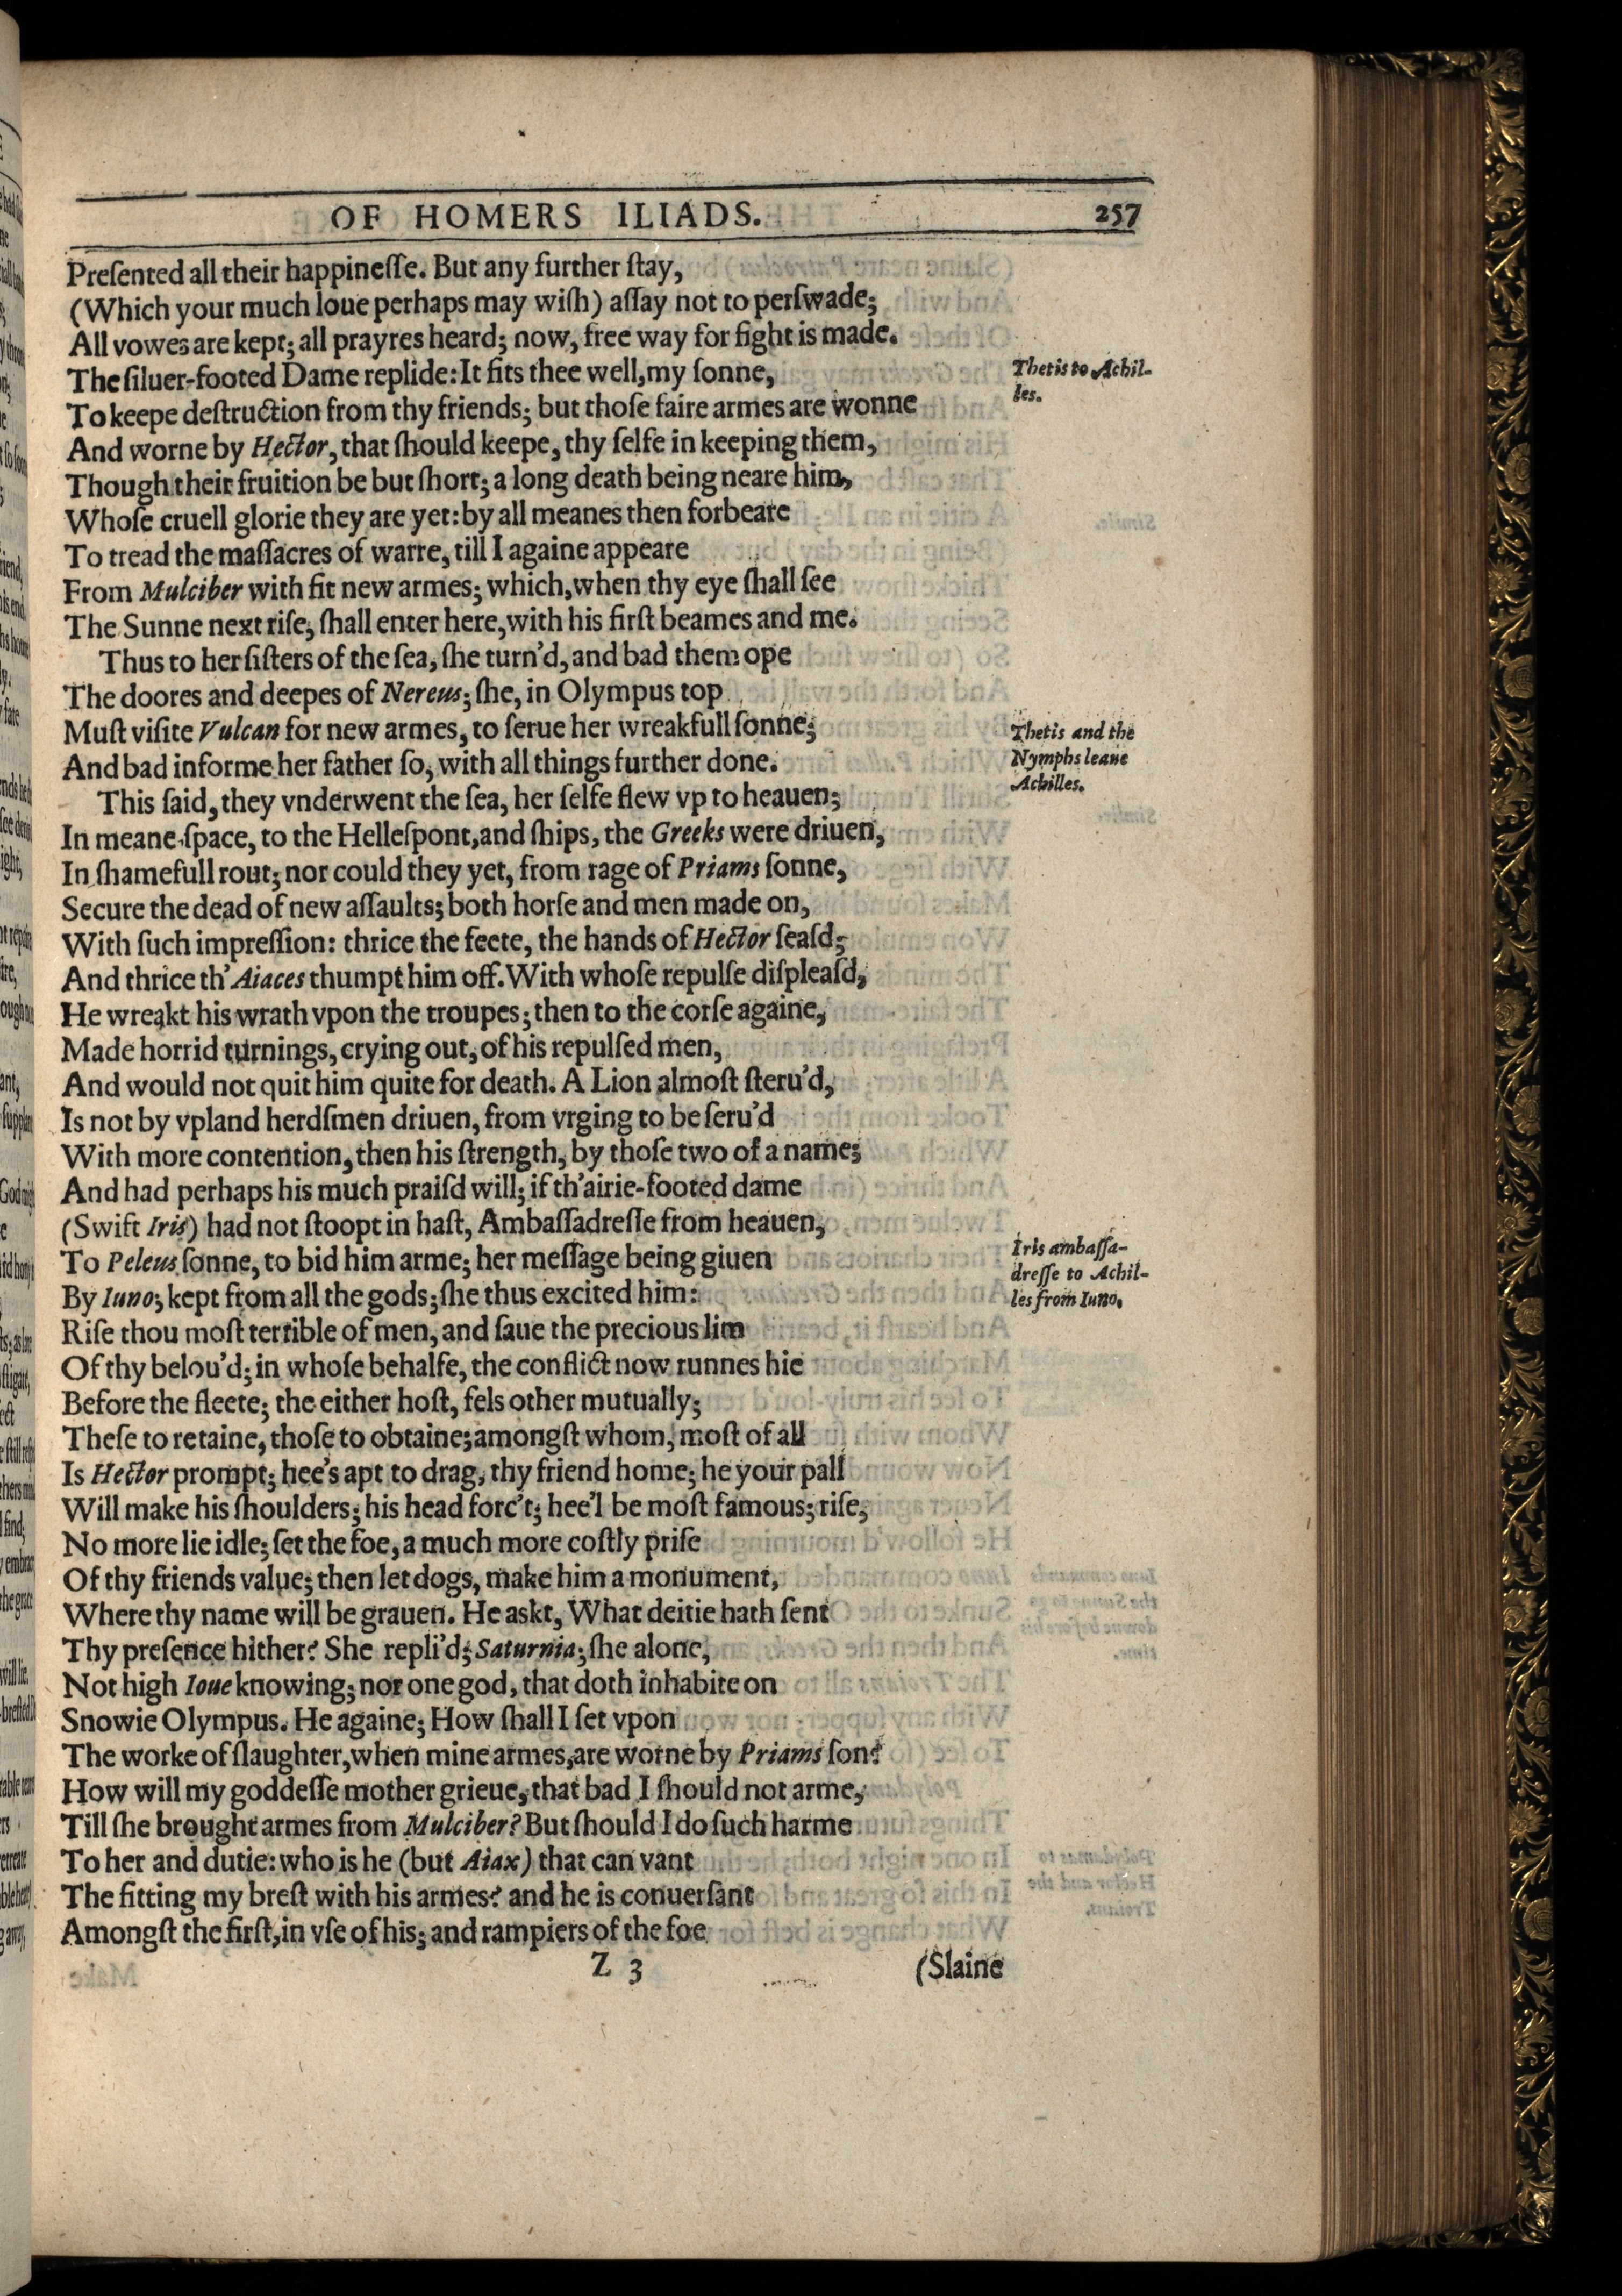 OF HOMERS ILIADS. 257
Preſented all their happineſſe. But any further ſtay,
(Which your much loue perhaps may wiſh) aſſay not to perſwade;
All vowes are kept; all prayres heard; now, free way for fight is made.
The ſiluer-footed Dame replide: It fits thee well, my ſonne,
Thetis to Achil-
les.
To keepe deſtruction from thy friends; but thoſe faire armes are wonne
And worne by Hector, that ſhould keepe, thy ſelfe in keeping them,
Though their fruition be but ſhort; a long death being neare him,
Whoſe cruell glorie they are yet: by all meanes then forbeare
To tread the maſſacres of warre, till I againe appeare
From Mulciber with fit new armes; which, when thy eye ſhall ſee
The Sunne next riſe, ſhall enter here, with his firſt beames and me.
Thus to her ſiſters of the ſea, ſhe turn'd, and bad them ope
The doores and deepes of Nereus; ſhe, in Olympus top
Muſt viſite Vulcan for new armes, to ſerue her wreakfull ſonne;
Thetis and the
Nymphs leaue
Achilles.
And bad informe her father ſo, with all things further done.
This ſaid, they vnderwent the ſea, her ſelfe flew vp to heauen;
In meane ſpace, to the Helleſpont, and ſhips, the Greeks were driuen,
In ſhamefull rout; nor could they yet, from rage of Priams ſonne,
Secure the dead of new aſſaults; both horſe and men made on,
With ſuch impreſſion: thrice the feete, the hands of Hector ſeaſd;
And thrice th' Aiaces thumpt him off. With whoſe repulſe diſpleaſd,
He wreakt his wrath vpon the troupes; then to the corſe againe,
Made horrid turnings, crying out, of his repulſed men,
And would not quit him quite for death. A Lion almoſt ſteru'd,
Is not by vpland herdſmen driuen, from vrging to be ſeru'd
With more contention, then his ſtrength, by thoſe two of a name;
And had perhaps his much praiſd will; if th'airie-footed dame
(Swift Iris) had not ſtoopt in haſt, Ambaſſadreſſe from heauen,
To Peleus ſonne, to bid him arme; her meſſage being giuen
Iris ambaſſa-
dreſſe to Achil-
les from Iuno.
By Iuno; kept from all the gods; ſhe thus excited him:
Riſe thou moſt terrible of men, and ſaue the precious lim
Of thy belou'd; in whoſe behalfe, the conflict now runnes hie
Before the fleete; the either hoſt, fels other mutually;
Theſe to retaine, thoſe to obtaine; amongſt whom, moſt of all
Is Hector prompt; hee's apt to drag, thy friend home; he your pall
Will make his ſhoulders; his head forc't; hee'l be moſt famous; riſe,
No more lie idle; ſet the foe, a much more coſtly priſe
Of thy friends value; then let dogs, make him a monument,
Where thy name will be grauen. He askt, What deitie hath ſent
Thy preſence hither? She repli'd; Saturnia; ſhe alone,
Not high Ioue knowing; nor one god, that doth inhabite on
Snowie Olympus. He againe; How ſhall I ſet vpon
The worke of ſlaughter, when mine armes, are worne by Priams ſon?
How will my goddeſſe mother grieue, that bad I ſhould not arme,
Till ſhe brought armes from Mulciber? But ſhould I do ſuch harme
To her and dutie: who is he (but Aiax) that can vant
The fitting my breſt with his armes? and he is conuerſant
Amongſt the firſt, in vſe of his; and rampiers of the foe
Z 3 (Slaine